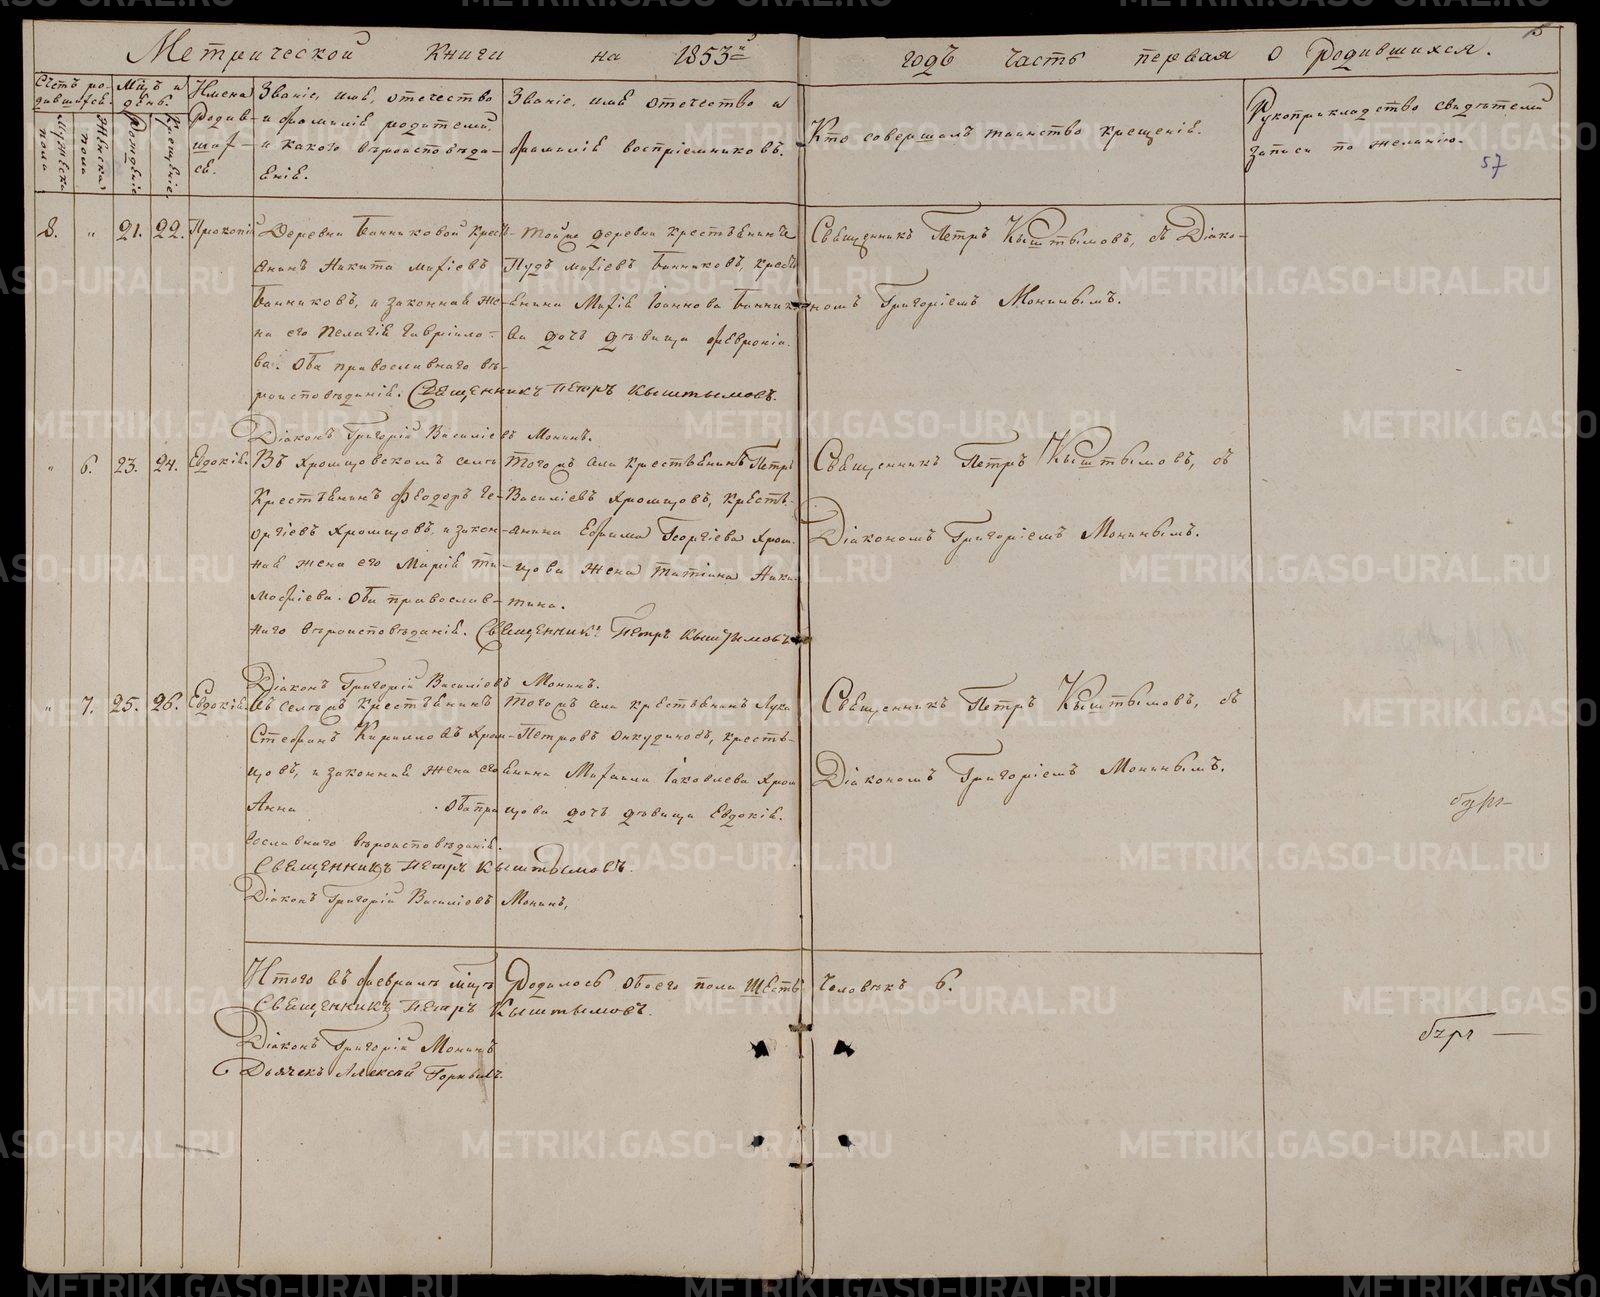 Метрической книги на 1853й годъ часть первая о родившихся.
15
57
Счетъ родившихся.
Мужеска пола
Женска пола
Мцъ и день.
Рожденіе
Крещеніе
Имена родившихся.
Званіе, имя, отечество и фамилія родителей, и какого вѣроисповѣданія.
Званіе, имя отечество и фамилія воспріемниковъ.
Кто совершалъ таинство крещенія.
Рукоприкладство свидѣтелей записи по желанію.
8. " 21. 22. Прокопій
Деревни Банниковой крестьянинъ Никита
Банниковъ, и законная же-
на его Пелагія Гавріило-
ва. Оба православнаго вѣ-
роисповѣданія. Священникъ Петръ Кыштымовъ.
Діаконъ Григорій Васильевъ Монинъ.
Тойже деревни крестьянинъ
Банниковъ, кресть-
янина Іоаннова Баннико-
ва дочь дѣвица Февронія.
Священникъ Петръ Кыштымовъ, съ Діако-
номъ Григоріемъ Мониnымъ.
" 6. 23. 24. Евдокія.
Въ Хромцовскомъ селѣ
Крестьянинъ Феодоръ Ге-
оргіевъ Хромцовъ, и закон-
ная жена его Марія Ти-
мофіева. Оба православ-
наго вѣроисповѣданія. Священникъ Петръ Кыштымовъ.
Діаконъ Григорій Васильевъ Монинъ.
Тогожъ села крестьянинъ Петръ
Васильевъ Хромцовъ, кресть-
янина Ефима Георгіева Хром-
цова жена Татіана Ники-
тина.
Священникъ Петръ Кыштымовъ, съ
Діакономъ Григоріемъ Мониным̆ъ.
" 7. 25. 26. Евдокія.
Въ селѣ крестьянинъ
Стефанъ Кирилловъ Хром-
цовъ, и законная жена его
Анна . Оба пра-
вославнаго вѣроисповѣданія.
Священникъ Петръ Кыштымовъ.
Діаконъ Григорій Васильевъ Монинъ.
Тогожъ села крестьянинъ Лука
Петровъ Онкудиновъ, кресть-
янина Михаила Іаковлева Хром-
цова дочь дѣвица Евдокія.
Священникъ Петръ Кыштымовъ, съ
Діакономъ Григоріемъ Мониным̆ъ.
Итого въ февралѣ мцѣ родилось обоего пола шесть человѣкъ 6.
Священникъ Петръ Кыштымовъ.
Діаконъ Григорій Монинъ
Дьячекъ Алексѣй Горныхъ.
METRIKI.GASO-URAL.RU